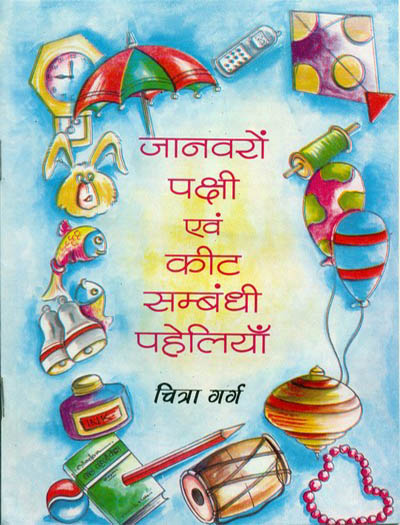 जानवरों
पक्षी
एवं
कीट
सम्बंधी
पहेलियाँ
चित्रा गर्ग
INK